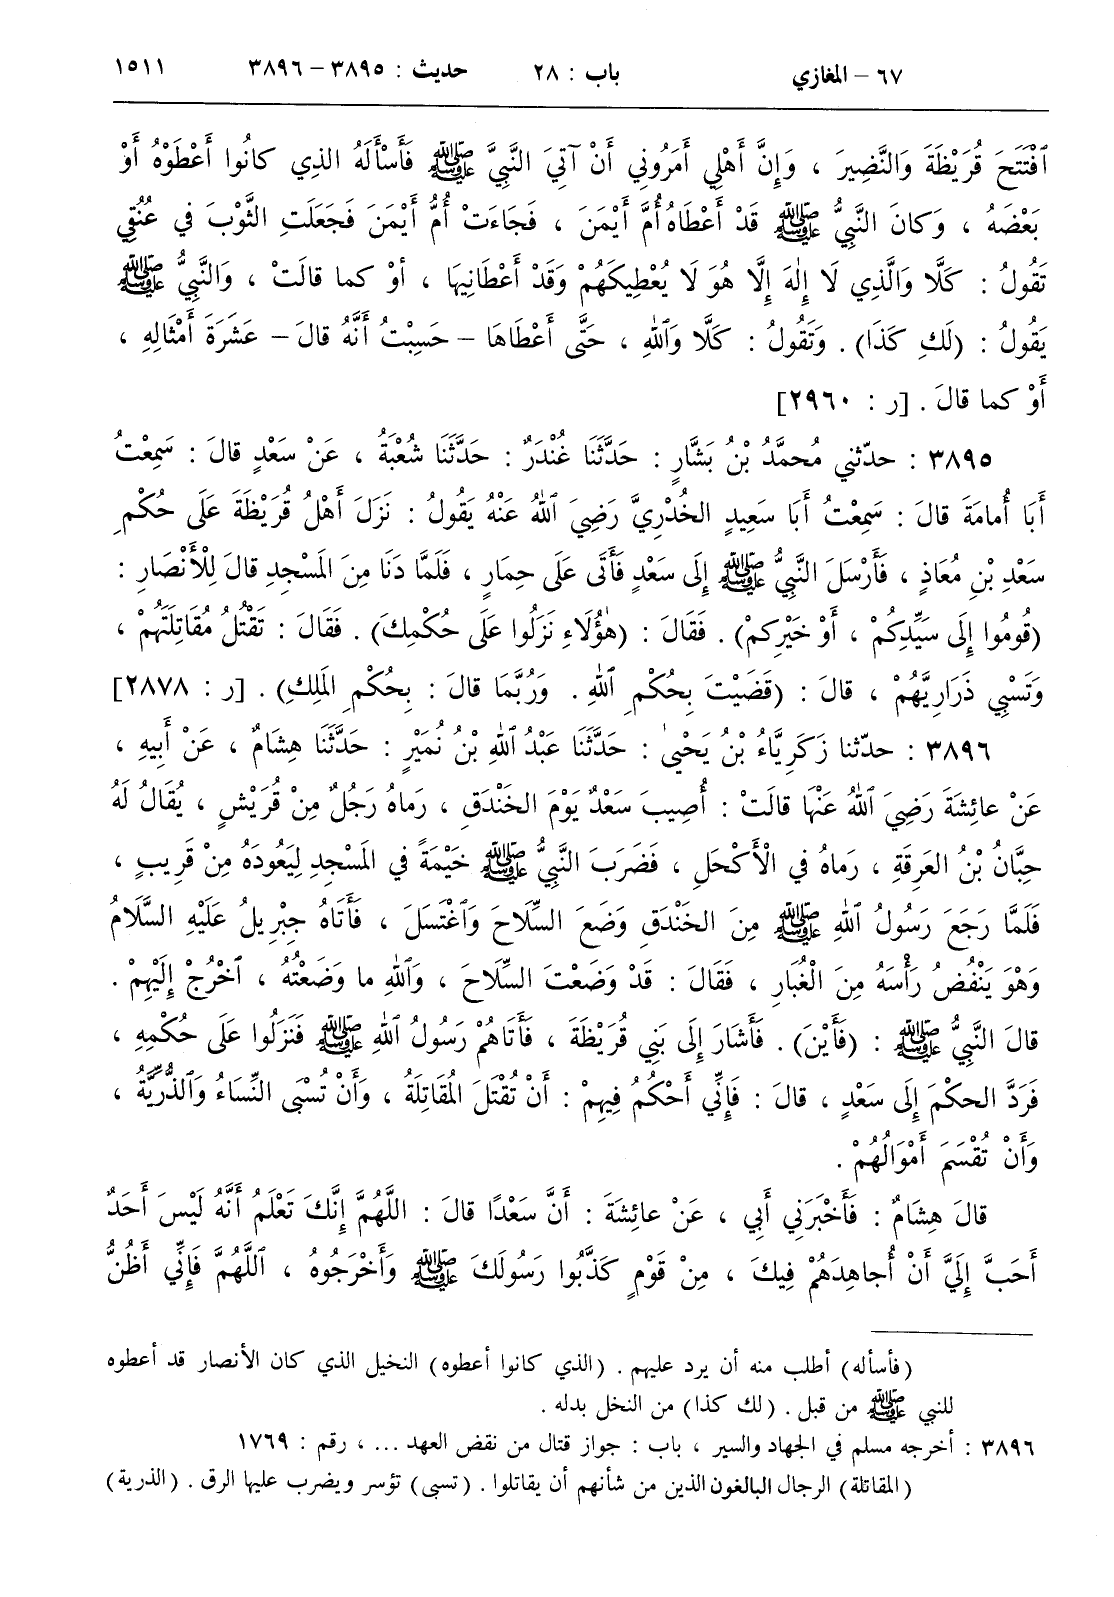 ٦٧ – المغازي باب : ٢٨ حديث : ٣٨٩٥ – ٣٨٩٦ ١٥١١
ٱفْتَتَحَ قُرَيْظَةَ وَالنَّضِيرَ ، وَإِنَّ أَهْلِي أَمَرُونِي أَنْ آتِيَ النَّبِيَّ ﷺ فَأَسْأَلَهُ الذِي كانُوا أَعْطَوْهُ أَوْ
بَعْضَهُ ، وَكانَ النَّبِيُّ ﷺ قَدْ أَعْطَاهُ أُمَّ أَيْمَنَ ، فَجَاءَتْ أُمُّ أَيْمَنَ فَجَعَلَتِ الثَّوْبَ في عُنُقِي
تَقُولُ : كَلَّا وَالَّذِي لَا إِلٰهَ إِلَّا هُوَ لَا يُعْطِيكَهُمْ وَقَدْ أَعْطَانِيهَا ، أوْ كما قالَتْ ، وَالنَّبِيُّ ﷺ
يَقُولُ : (لَكِ كَذَا) . وَتَقُولُ : كَلَّا وَٱللهِ ، حَتَّى أَعْطَاهَا – حَسِبْتُ أَنَّهُ قالَ – عَشَرَةَ أَمْثَالِهِ ،
أَوْ كما قالَ . [ر : ٢٩٦٠]
٣٨٩٥ : حدّثني مُحمَّدُ بْنُ بَشَّارٍ : حَدَّثَنَا غُنْدَرٌ : حَدَّثَنَا شُعْبَةُ ، عَنْ سَعْدٍ قالَ : سَمِعْتُ
أَبَا أُمامَةَ قالَ : سَمِعْتُ أَبَا سَعِيدٍ الخُدْرِيَّ رَضِيَ ٱللهُ عَنْهُ يَقُولُ : نَزَلَ أَهْلُ قُرَيْظَةَ عَلَى حُكْمِ
سَعْدِ بْنِ مُعَاذٍ ، فَأَرْسَلَ النَّبِيُّ ﷺ إِلَى سَعْدٍ فَأَتَى عَلَى حِمَارٍ ، فَلَمَّا دَنَا مِنَ المَسْجِدِ قالَ لِلْأَنْصَارِ :
(قُومُوا إِلَى سَيِّدِكُمْ ، أَوْ خَيْرِكمْ) . فَقَالَ : (هٰؤُلَاءِ نَزَلُوا عَلَى حُكْمِكَ) . فَقَالَ : تَقْتُلُ مُقَاتِلَتَهُمْ ،
وَتَسْبِي ذَرَارِيَّهُمْ ، قالَ : (قَضَيْتَ بِحُكْمِ ٱللهِ . وَرُبَّمَا قالَ : بِحُكْمِ المَلِكِ) . [ر : ٢٨٧٨]
٣٨٩٦ : حدّثنا زَكَرِيَّاءُ بْنُ يَحْيىٰ : حَدَّثَنَا عَبْدُ ٱللهِ بْنُ نُمَيْرٍ : حَدَّثَنَا هِشَامٌ ، عَنْ أَبِيهِ ،
عَنْ عائِشَةَ رَضِيَ ٱللهُ عَنْهَا قالَتْ : أُصِيبَ سَعْدٌ يَوْمَ الخَنْدَقِ ، رَماهُ رَجُلٌ مِنْ قُرَيْشٍ ، يُقَالُ لَهُ
حِبَّانُ بْنُ العَرِقَةِ ، رَماهُ في الْأَكْحَلِ ، فَضَرَبَ النَّبِيُّ ﷺ خَيْمَةً في المَسْجِدِ لِيَعُودَهُ مِنْ قَرِيبٍ ،
فَلَمَّا رَجَعَ رَسُولُ ٱللهِ ﷺ مِنَ الخَنْدَقِ وَضَعَ السِّلَاحَ وَٱغْتَسَلَ ، فَأَتَاهُ جِبْرِيلُ عَلَيْهِ السَّلَامُ
وَهْوَ يَنْفُضُ رَأْسَهُ مِنَ الْغُبَارِ ، فَقَالَ : قَدْ وَضَعْتَ السِّلَاحَ ، وَٱللهِ ما وَضَعْتُهُ ، ٱخْرُجْ إِلَيْهِمْ .
قالَ النَّبِيُّ ﷺ : (فَأَيْنَ) . فَأَشَارَ إِلَى بَنِي قُرَيْظَةَ ، فَأَتَاهُمْ رَسُولُ ٱللهِ ﷺ فَنَزَلُوا عَلَى حُكْمِهِ ،
فَرَدَّ الحكْمَ إِلَى سَعْدٍ ، قالَ : فَإِنِّي أَحْكُمُ فِيهِمْ : أَنْ تُقْتَلَ المُقَاتِلَةُ ، وَأَنْ تُسْبَى النِّسَاءُ وَٱلذُّرِّيَّةُ ،
وَأَنْ تُقْسَمَ أَمْوَالُهُمْ .
قالَ هِشَامٌ : فَأَخْبَرَنِي أَبِي ، عَنْ عائِشَةَ : أَنَّ سَعْدًا قالَ : اللَّهُمَّ إِنَّكَ تَعْلَمُ أَنَّهُ لَيْسَ أَحَدٌ
أَحَبَّ إِلَيَّ أَنْ أُجاهِدَهُمْ فِيكَ ، مِنْ قَوْمٍ كَذَّبُوا رَسُولَكَ ﷺ وَأَخْرَجُوهُ ، ٱللَّهُمَّ فَإِنِّي أَظُنُّ
(فأسأله) أطلب منه أن يرد عليهم . (الذي كانوا أعطوه) النخيل الذي كان الأنصار قد أعطوه
للنبي ﷺ من قبل . (لك كذا) من النخل بدله .
٣٨٩٦ : أخرجه مسلم في الجهاد والسير ، باب : جواز قتال من نقض العهد ... ، رقم : ١٧٦٩
(المقاتلة) الرجال البالغون الذين من شأنهم أن يقاتلوا . (تسبى) تؤسر ويضرب عليها الرق . (الذرية)